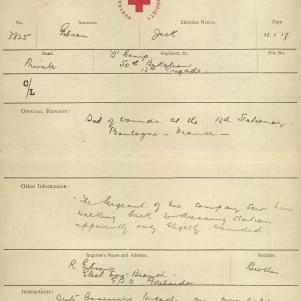 No. Surname. Christian Name. Date.
3825 Gibson Jack 12.1.17
Rank. Regiment, &c. File No.
Private "D" Comp.
50th Battalion
13th Brigade
C/L
OFFICIAL REPORTS:
Died of wounds at the 13th Stationary
Boulogne – France –
Other Information:
"The Sergeant of his company saw him
walking back to dressing station
apparently only slightly wounded
Inquirer's Name and Address. Relation.
R. Gibson Brother
Branch
G.P.O. Adelaide
Instructions: